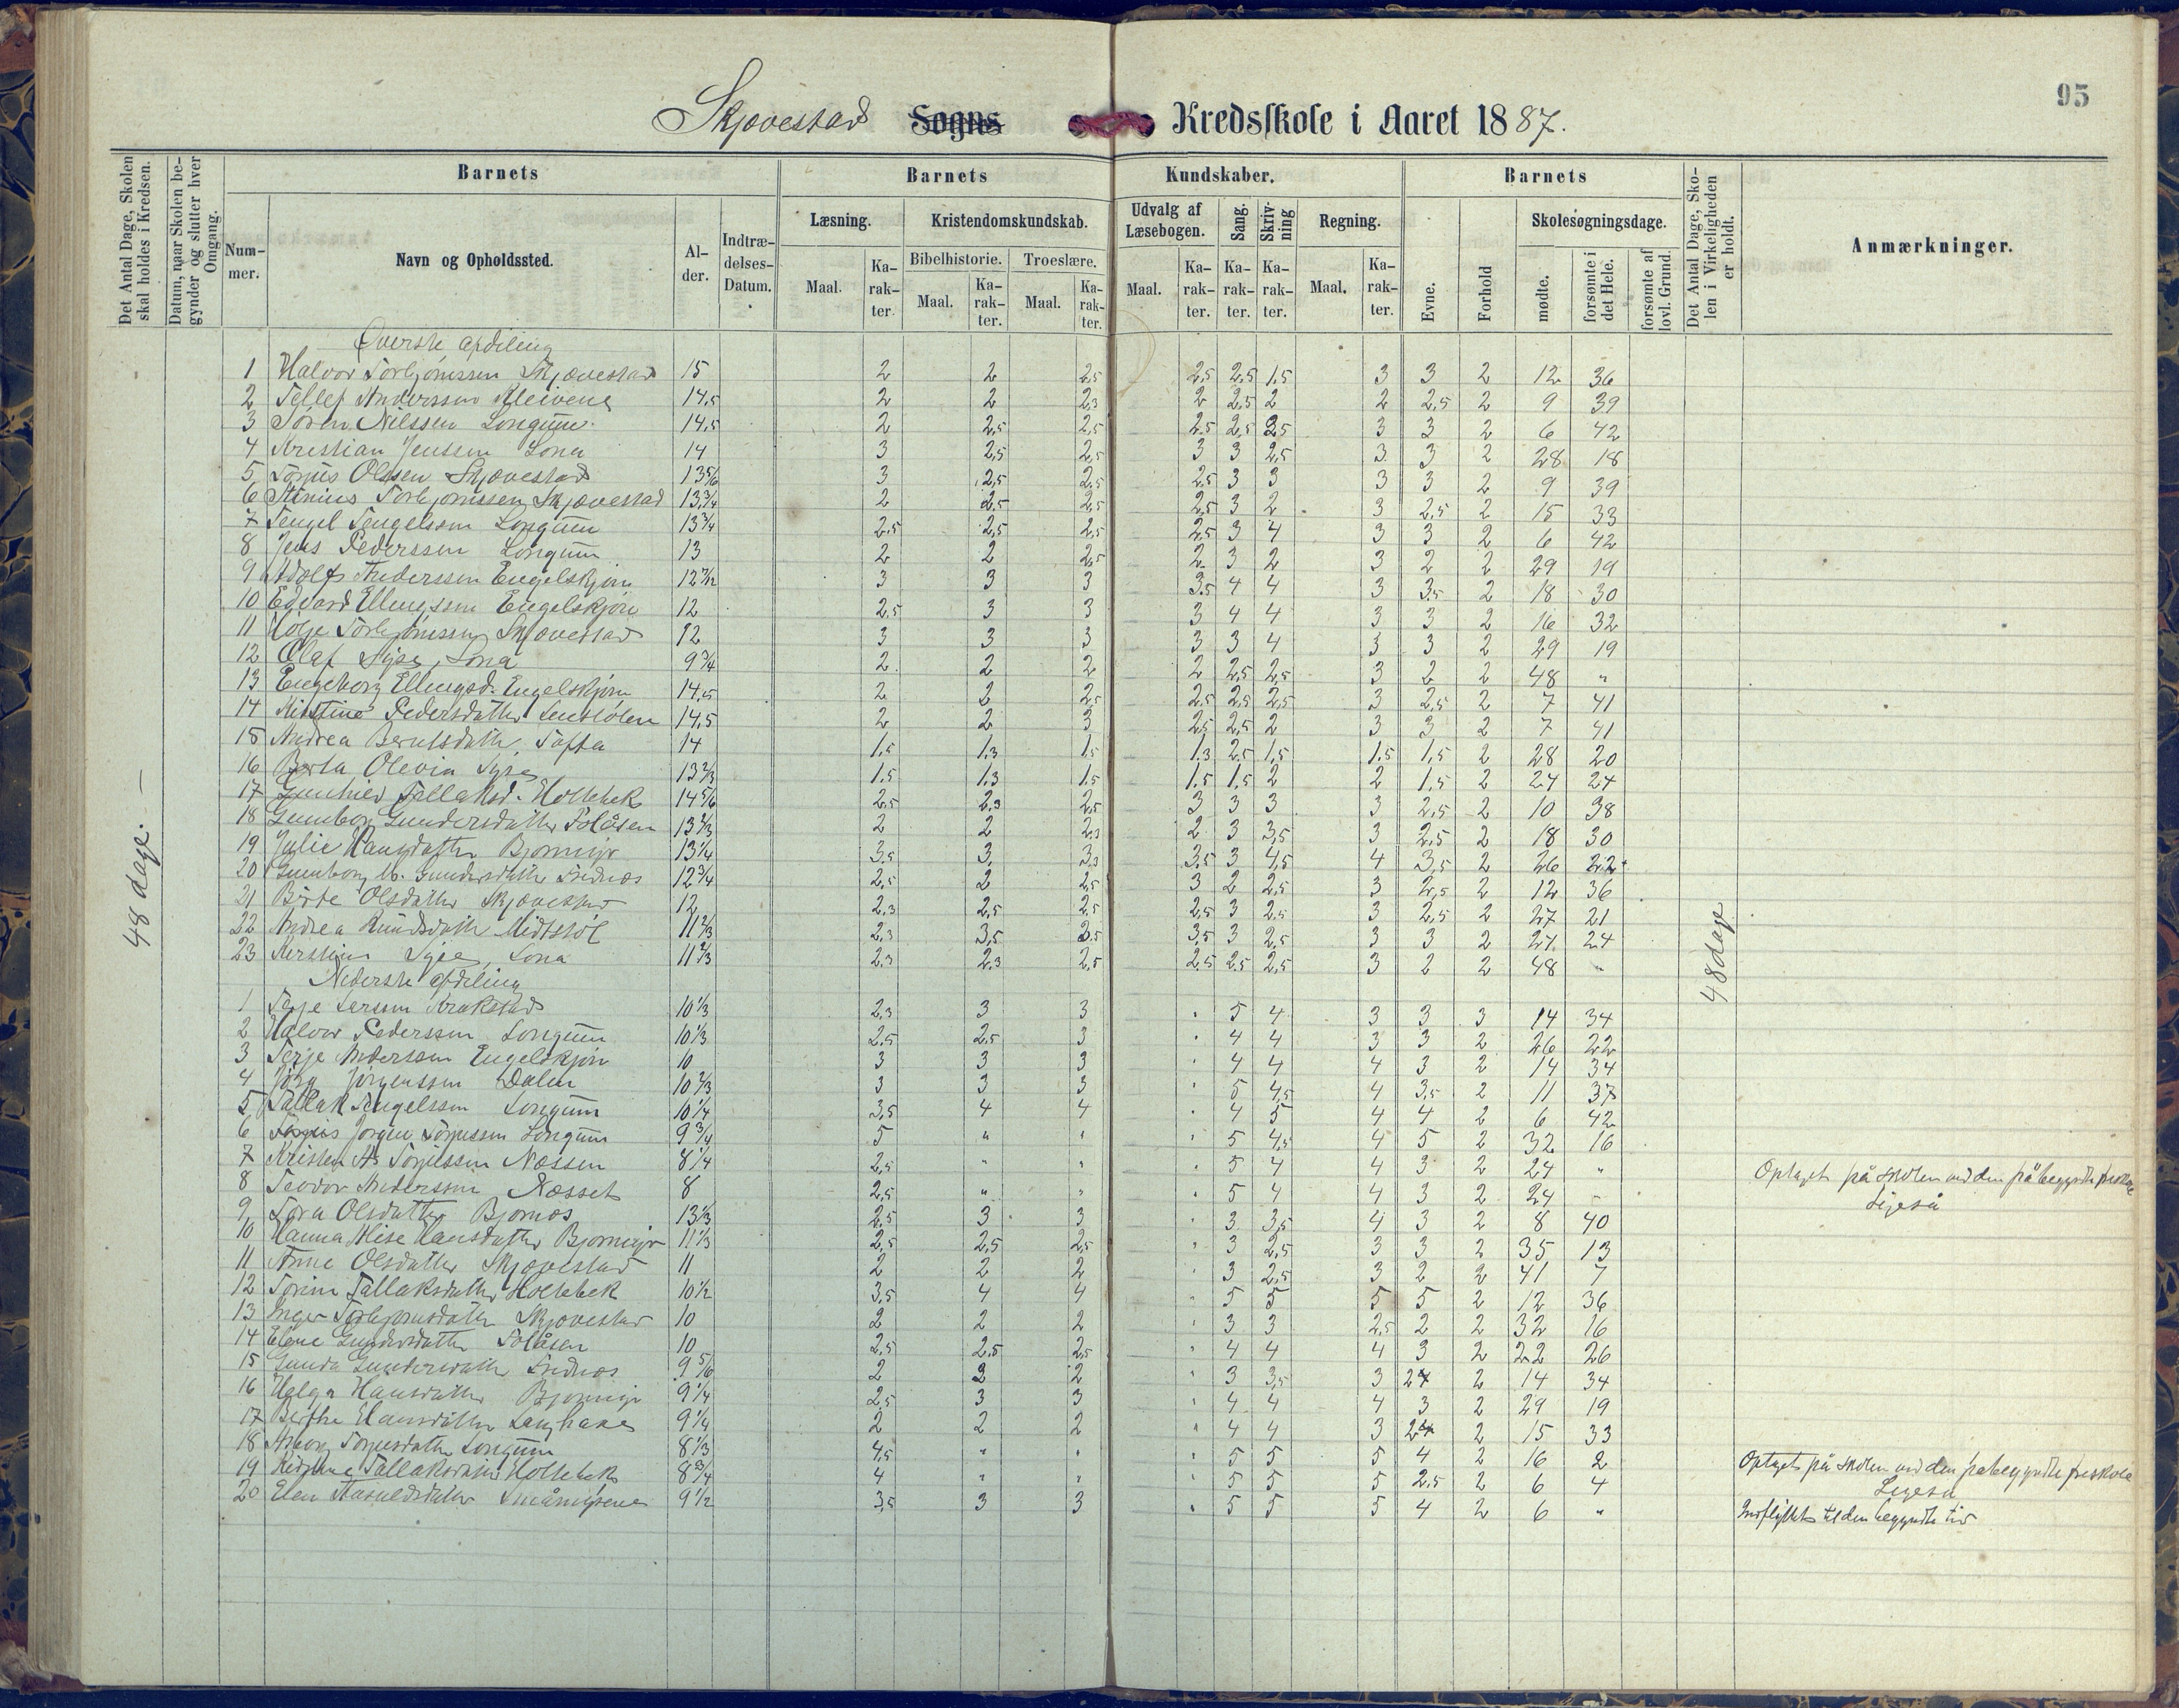 95
Skjævestad Sogns Kredsskole i Aaret 1887.
Det Antal Dage, Skolen skal holdes i Kredsen.
Datum, naar Skolen begynder og slutter hver Omgang.
Barnets
Nummer.
Navn og Opholdssted.
Alder.
Indtrædelses-Datum.
Barnets Kundskaber.
Læsning.
Maal. Karakter.
Kristendomskundskab.
Bibelhistorie. Troeslære.
Maal. Karakter. Maal. Karakter.
Udvalg af Læsebogen. Sang. Skrivning Regning.
Maal. Karakter. Karakter. Karakter. Maal. Karakter.
Barnets
Evne. Forhold
Skolesøgningsdage.
mødte. forsømte i det Hele. forsømte af lovl. Grund.
Det Antal Dage, Skolen i Virkeligheden er holdt.
Anmærkninger.
48 dage. —
48 dage
Øverste afdeling
1 Halvor Torbjørnssen Skjævestad 15 2 2 2,5 2,5 2,5 1,5 3 3 2 12 36
2 Tellef Anderssen Kleivene 14,5 2 2 2,3 2 2,5 2 2 2,5 2 9 39
3 Søren Nilssen Longum 14,5 2 2,5 2,5 2,5 2,5 2,5 3 3 2 6 42
4 Kristian Jenssen Lona 14 3 2,5 2,5 3 3 2,5 3 3 2 28 18
5 Torjus Olssen Skjævestad 13 5/6 3 2,5 2,5 2,5 3 3 3 3 2 9 39
6 Torbjørnssen Skjævestad 13 3/4 2 2,5 2,5 2,5 3 2 3 2,5 2 15 33
7 Tengel Tengelssen Longum 13 3/4 2,5 2,5 2,5 2,5 3 4 3 3 2 6 42
8 Jens Pederssen Longum 13 2 2 2,5 2 3 2 3 2 2 29 19
9 Adolf Anderssen Engelskjøn 12 7/12 3 3 3 3,5 4 4 3 3,5 2 18 30
10 Edvard Ellingssen Engelskjøn 12 2,5 3 3 3 4 4 3 3 2 16 32
11 Holje Torbjørnssen Skjævestad 12 3 3 3 3 3 4 3 3 2 29 19
12 Olaf Syse, Lona 9 3/4 2 2 2 2 2,5 2,5 3 2 2 48 "
13 Engeborg Ellingsd. Engelskjøn 14,5 2 2 2,5 2,5 2,5 2,5 3 2,5 2 7 41
14 Kristine Pedersdatter 14,5 2 2 3 2,5 2,5 2 3 3 2 7 41
15 Andrea Berntsdatter, Tofta 14 1,5 1,3 1,5 1,3 2,5 1,5 1,5 1,5 2 28 20
16 Berta Olevia Syse 13 2/3 1,5 1,3 1,5 1,5 1,5 2 2 1,5 2 24 24
17 Gunhild Tallaksd. Holtebek 14 5/6 2,5 2,3 2,5 3 3 3 3 2,5 2 10 38
18 Gunborg Gundersdatter Solåsen 13 2/3 2 2 2,3 2 3 3,5 3 2,5 2 18 30
19 Julie Hansdatter Bjornmyr 13 1/4 3,5 3 3,3 3,5 3 4,5 4 3,5 2 26 22
20 Gunborg M. Gundersdatter 12 3/4 2,5 2 2,5 3 2 2,5 3 2,5 2 12 36
21 Birte Olsdatter Skjævestad 12 2,3 2,5 2,5 2,5 3 2,5 3 2,5 2 27 21
22 Andrea Knudsdatter Midtstøl 11 2/3 2,3 3,5 3,5 3,5 3 2,5 3 3 2 24 24
23 Kerstine Syse, Lona 11 2/3 2,3 2,3 2,5 2,5 2,5 2,5 3 2 2 48 "
Nederste afdeling
1 Terje Larssen Krakestad 10 1/3 2,3 3 3 " 5 4 3 3 3 14 34
2 Halvor Pederssen Longum 10 1/3 2,5 2,5 3 " 4 4 3 3 2 26 22
3 Terje Anderssen Engelskjøn 10 3 3 3 " 4 4 4 3 2 14 34
4 Jørg Jørgenssen Dalen 10 2/3 3 3 3 " 5 4,5 4 3,5 2 11 37
5 Tallak Tengelssen Longum 10 1/4 3,5 4 4 " 4 5 4 4 2 6 42
6 Torjus Jørgen Torjussen Longum 9 3/4 5 " " " 5 4,5 4 5 2 32 16
7 Kristen As Torjussen Næssen 8 1/4 2,5 " " " 5 4 4 3 2 24 " Optaget på skolen ved den påbegyndte
8 Teodor Anderssen Næsset 8 2,5 " " " 5 4 4 3 2 24 " Ligeså
9 Tora Olsdatter Bjornos 13 1/3 2,5 3 3 " 3 3,5 4 3 2 8 40
10 Hanna Alise Hansdatter Bjornmyr 11 1/3 2,5 2,5 2,5 " 3 2,5 3 3 2 35 13
11 Anne Olsdatter Skjævestad 11 2 2 2 " 3 2,5 3 2 2 41 7
12 Torine Tallaksdatter Holtebek 10 1/2 3,5 4 4 " 5 5 5 5 2 12 36
13 Inger Torbjørnsdatter Skjævestad 10 2 2 2 " 3 3 2,5 2 2 32 16
14 Elene Gundersdatter Solåsen 10 2,5 2,5 2,5 " 4 4 4 3 2 22 26
15 Gunda Gundersdatter 9 5/6 2 2 2 " 3 3,5 3 2 2 14 34
16 Helga Hansdatter Bjornmyr 9 1/4 2,5 3 3 " 4 4 4 3 2 29 19
17 Berthe Hansdatter Langhake 9 1/4 2 2 2 " 4 4 3 2 2 15 33
18 Torjusdatter Longum 8 1/3 4,5 " " " 5 5 5 4 2 16 2 Optaget på skolen ved den påbegyndte
19 Tallaksdatter Holtebek 8 3/4 4 " " " 5 5 5 2,5 2 6 4 Ligeså
20 Elen Småmyrene 9 1/2 3,5 3 3 " 5 5 5 4 2 6 " Indflyttet til den begyndte tid